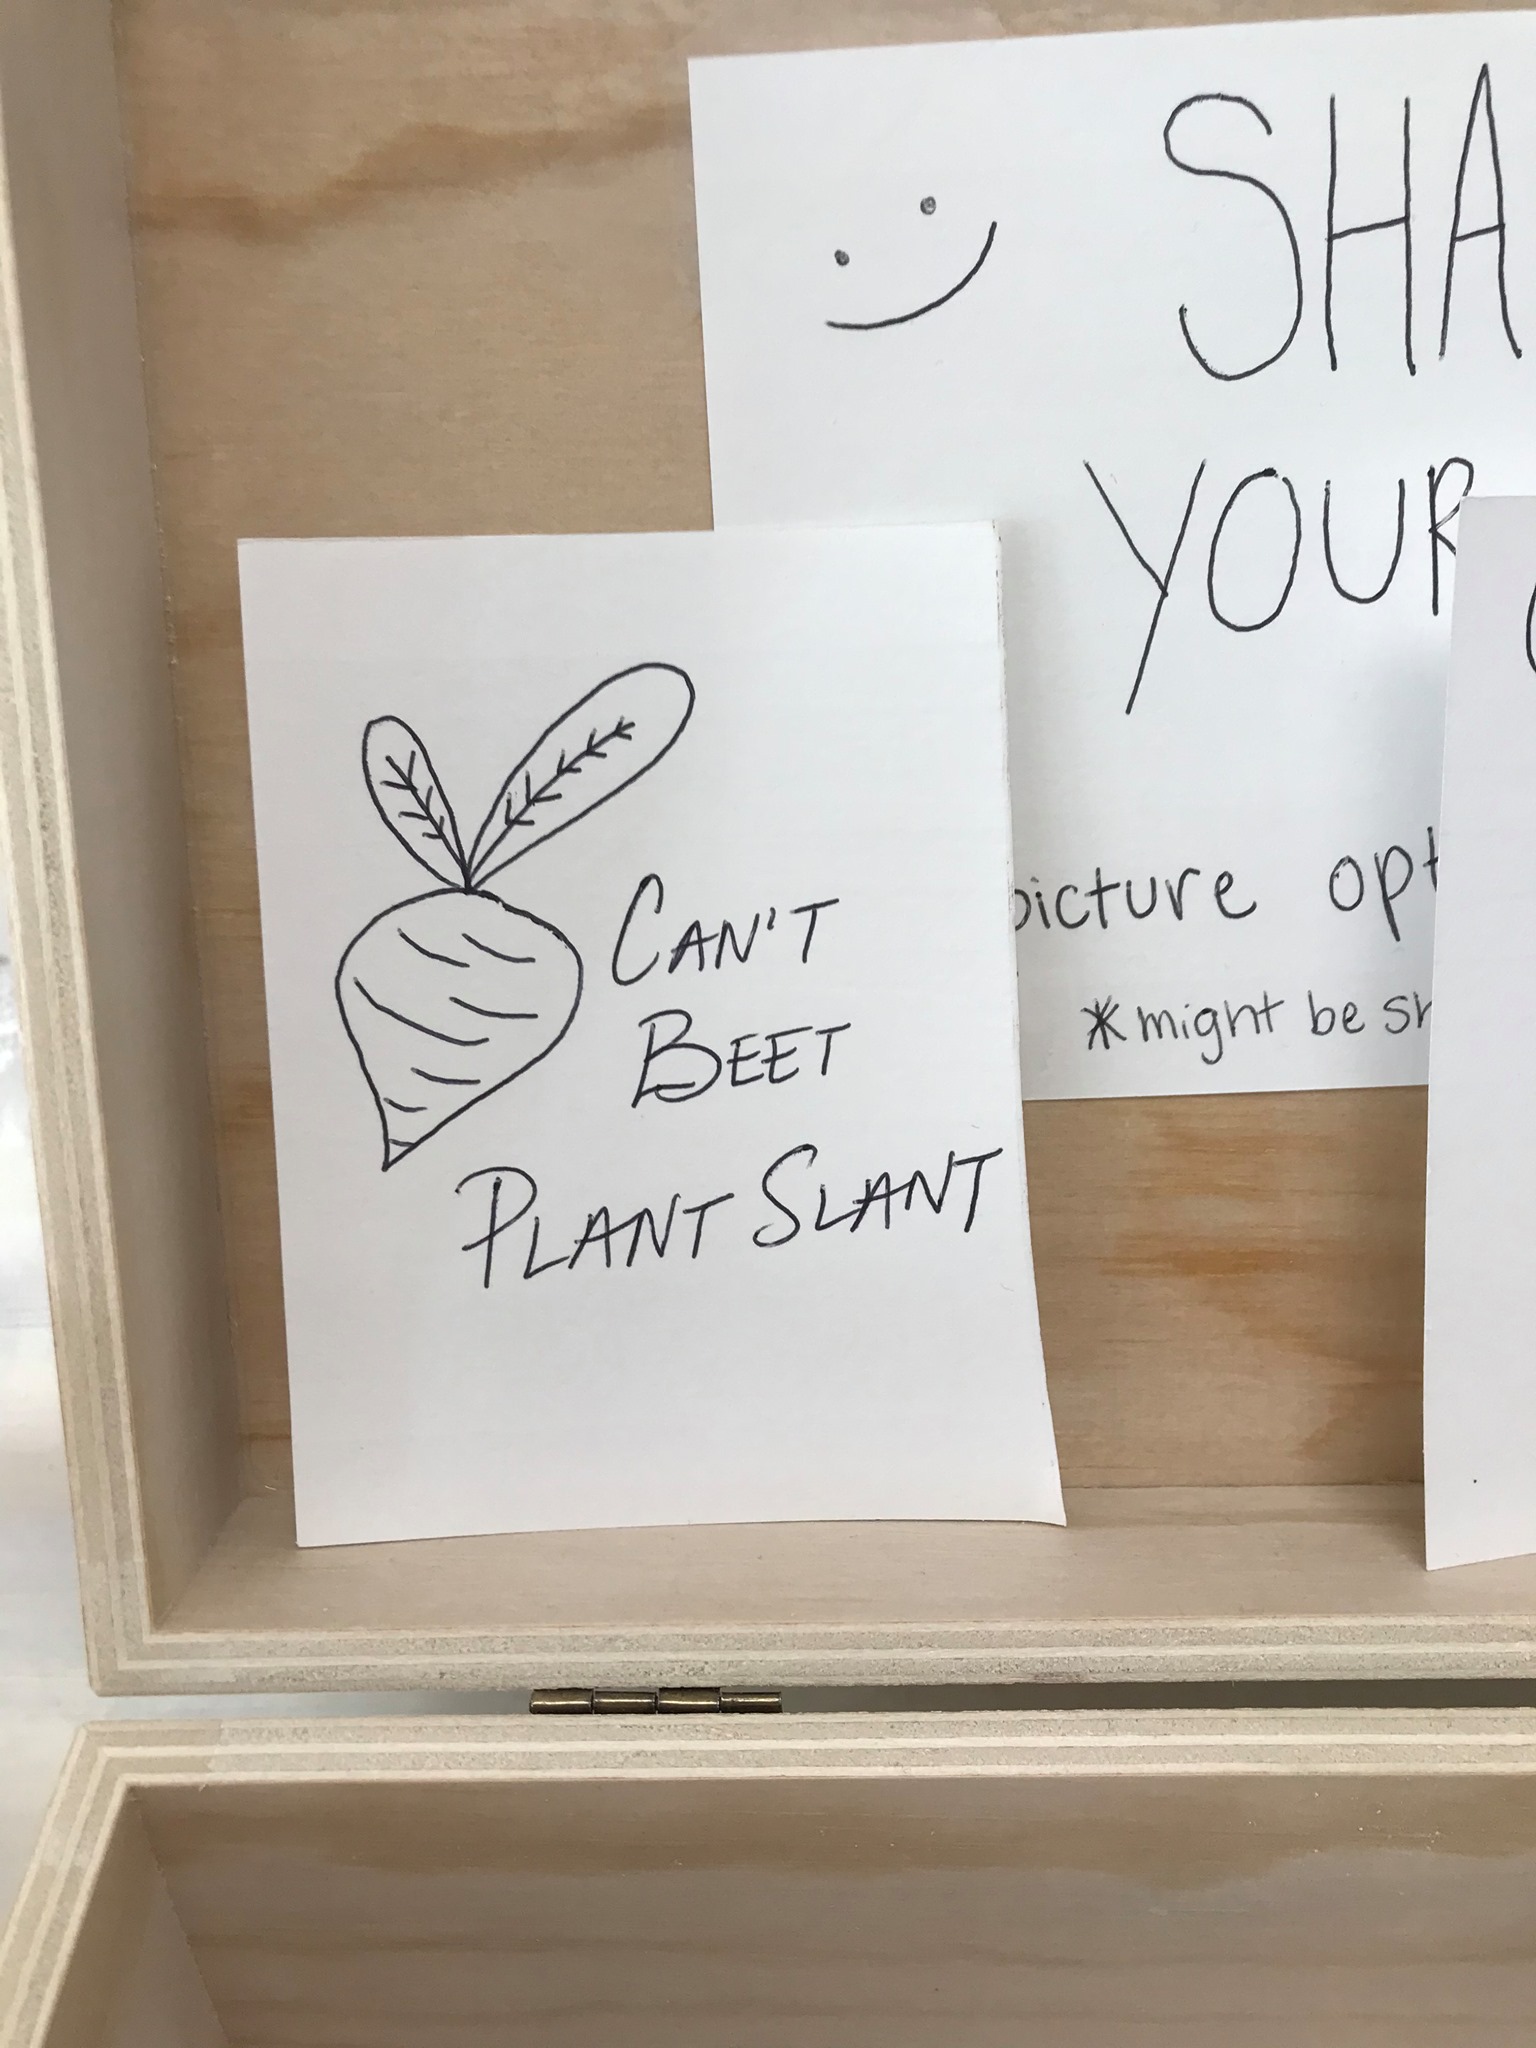 SHA
YOUR
picture opt
*might be sh
CAN'T
BEET
PLANT SLANT